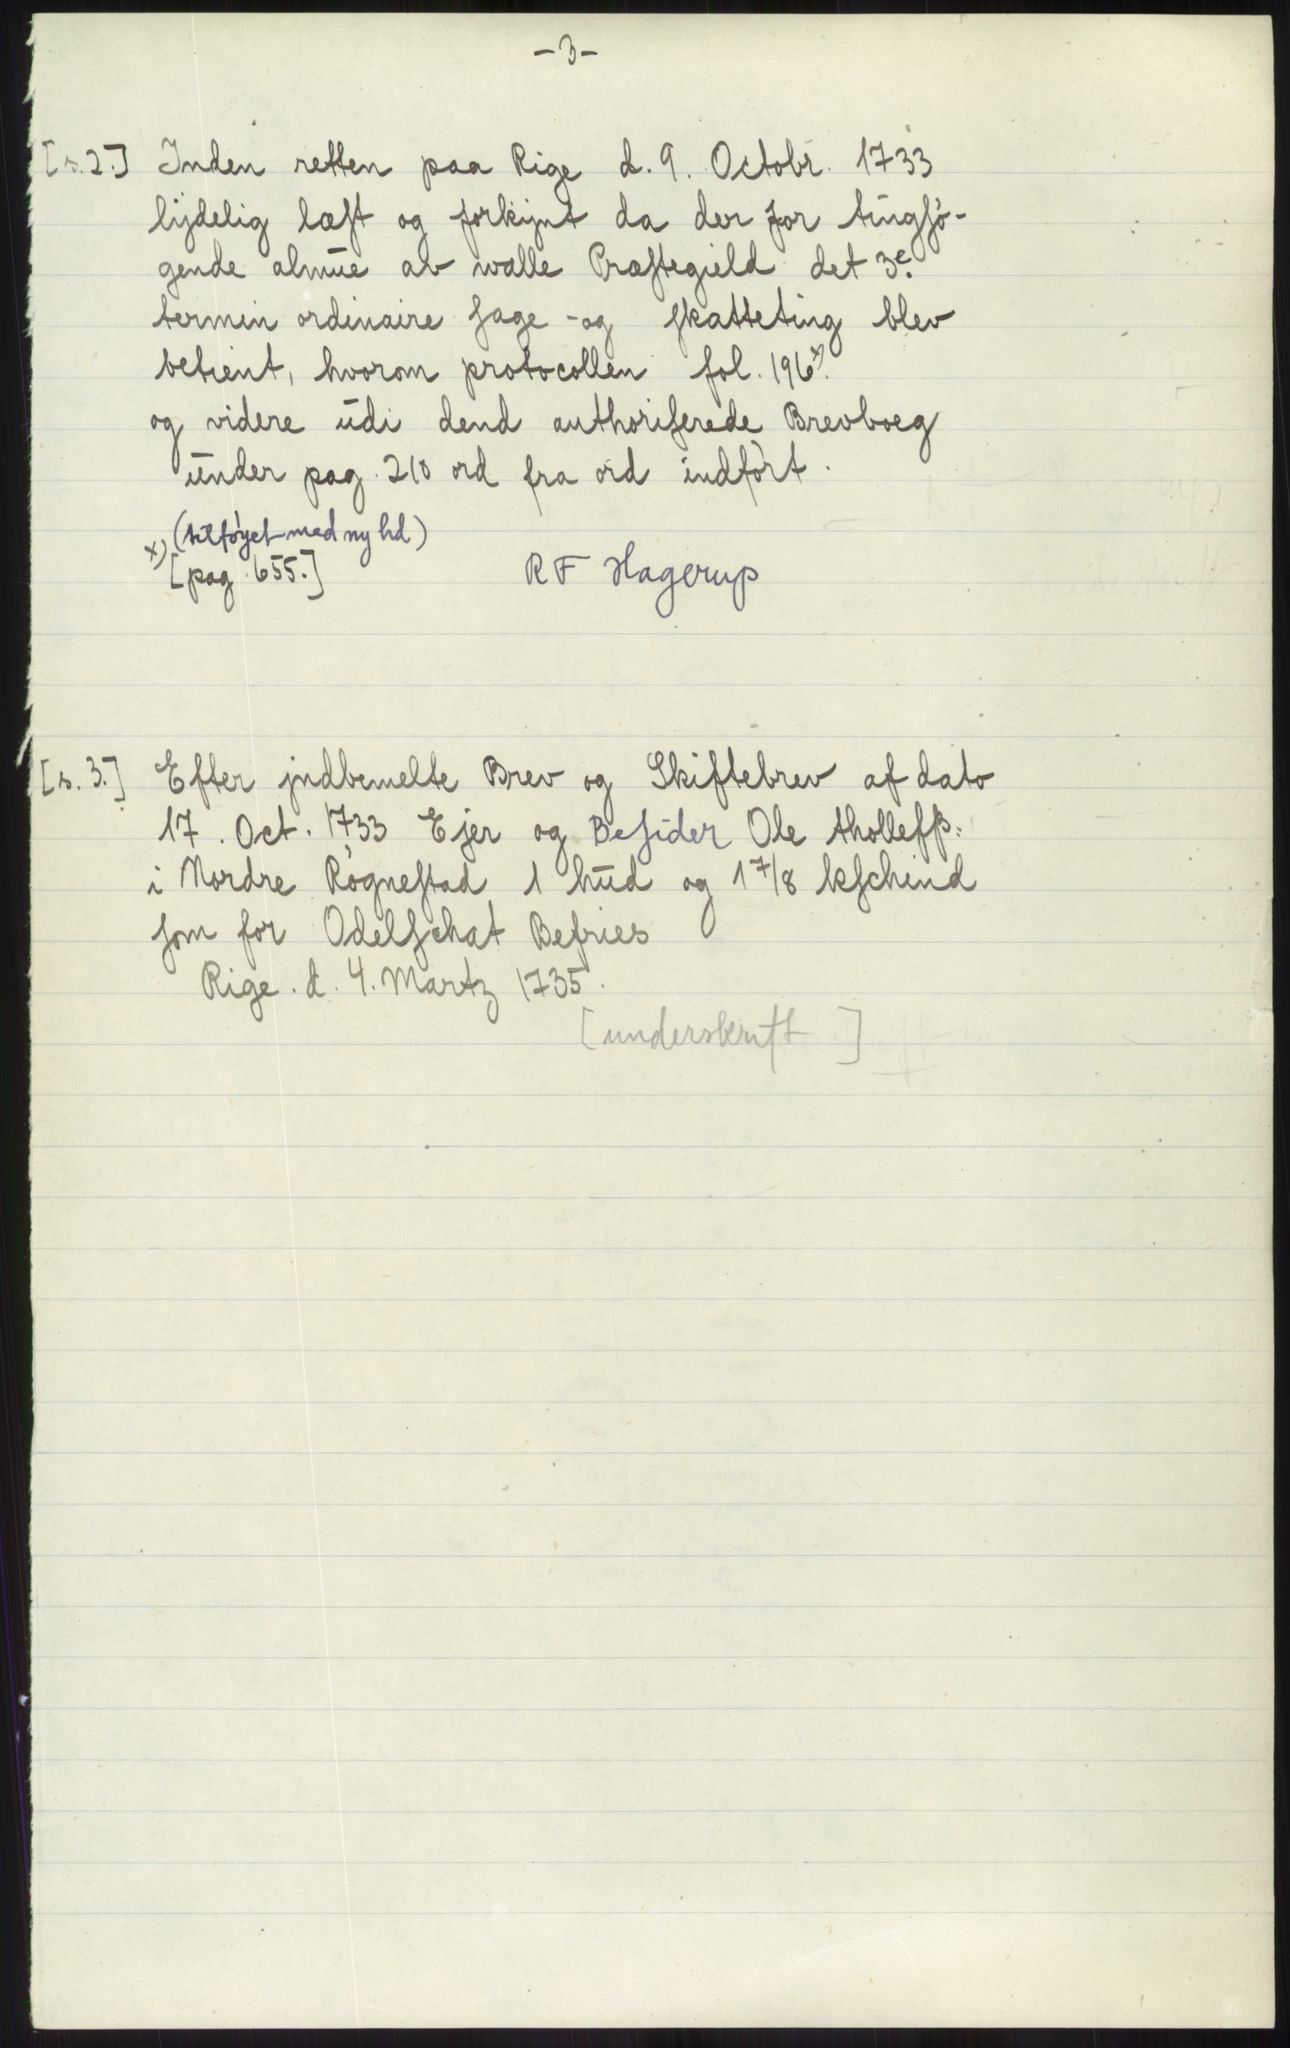 -3-
[s.2.] Inden retten paa Rige d. 9. Octobr. 1733
lijdelig læſt og forkijnt da der for tingſö-
gende almŭe av walle Præſtegield det 3e
termin ordinaire ſage - og ſkatteting blev
betient, hvorom protocollen fol. 196 x).
og videre ŭdi dend authoriſerede Brevboeg
ŭnder pag. 210 ord fra ord indfört.
(tilføyet med ny hd)
x) [pag. 655.] R F Hagerup
[s. 3.] Efter jndbemelte Brev og Skiftebrev af dato
17. Oct. 1733 Ejer og Beſider Ole thollefſ:
i Nordre Rögneſtad 1 hŭd og 1 7/8 kſchind
ſom for Odelſchat Befries
Rige. d. 4. Martz 1735.
[underskrift ]